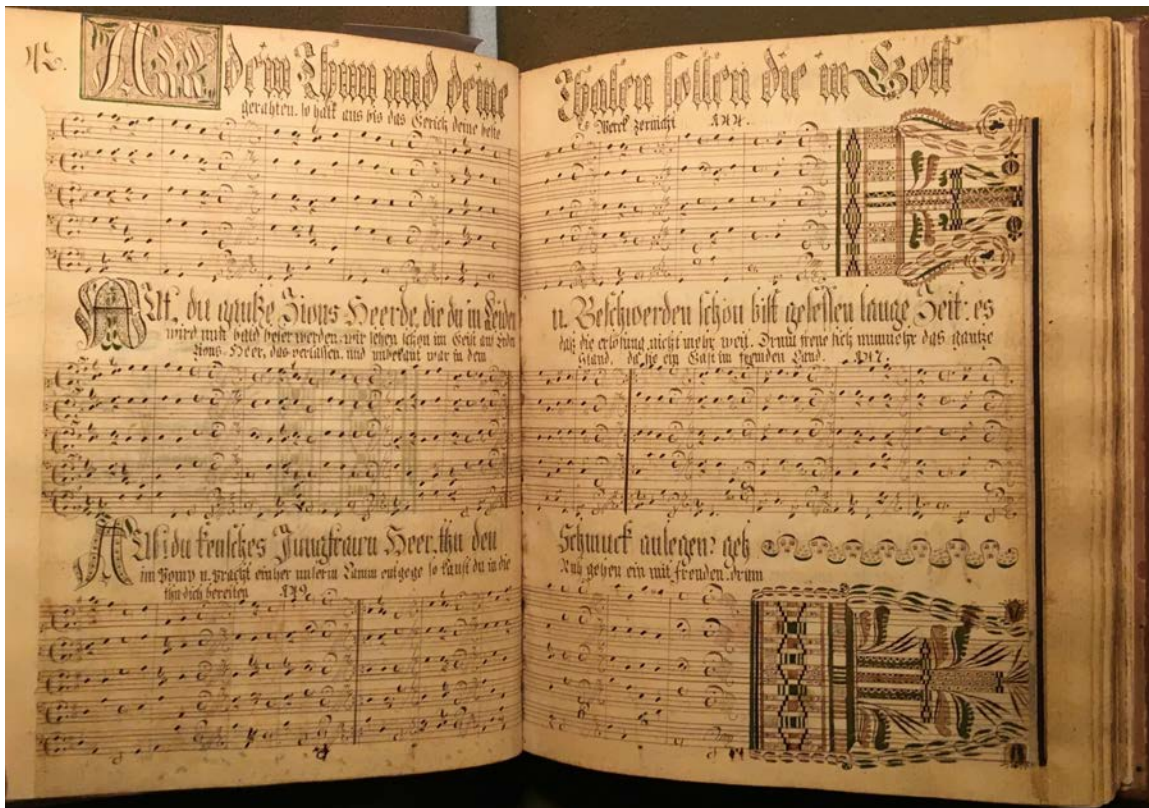 dein Thun und deine Thaten sollen die in Gott
gerahten, so halt aus bis das Gericht deine beste s Werck zernicht
Auf, du gantze Zions Heerde, die du in Leiden u. Beschwerden schon bist gesessen lange Zeit: es
wird nun bald besser werden, wir sehen schon im Geist auf Erden daß die erlösung nicht mehr weit. Drum freue sich nunmehr das gantze
Zions-Heer, das verlassen, und unbekant war in dem Stand, da sie ein Gast im fremden Land.
Auf! du keusches Jungfrauen Heer, thu den Schmuck anlegen: geh
im Pomp u. Pracht einher unserm Lamm entgege so kanst du in die Ruh gehen ein mit freuden, drum
thu dich bereiten